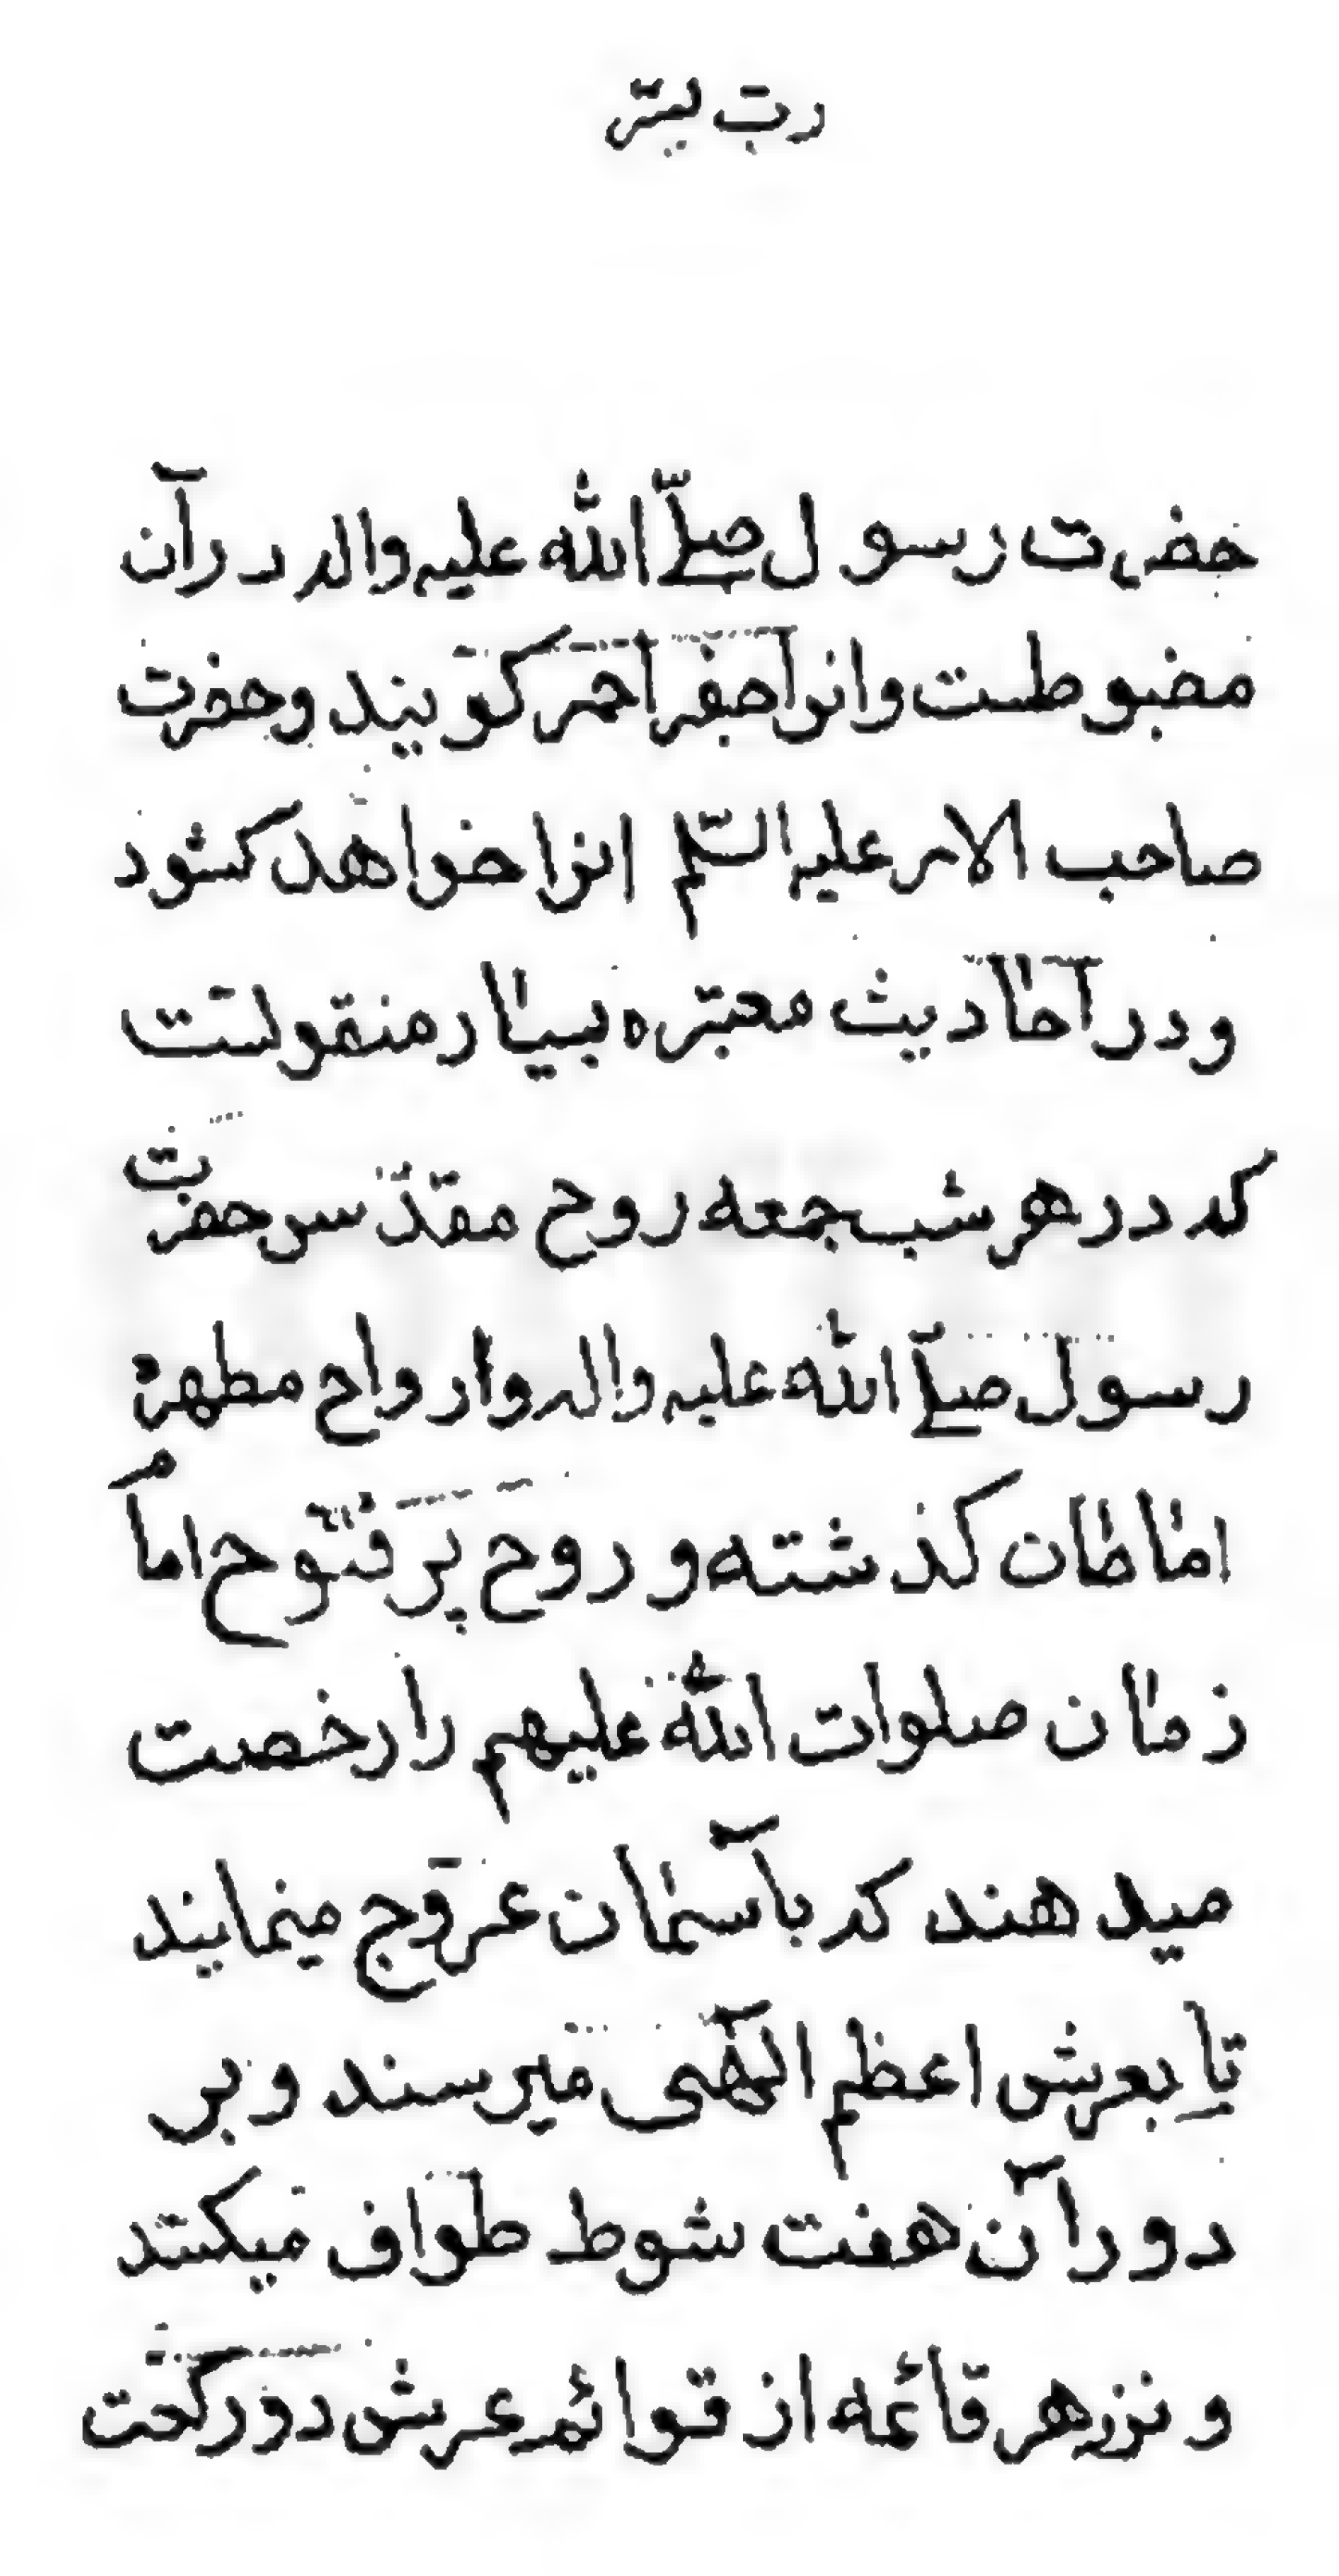 رب یسّر
حضرت رسول صلّے اللّٰه علیه واله در آن
مضبوطست وانرا جفر احمر کویند وحضرت
صاحب الامر علیه السّلم انرا خواهد کشود
ودر احادیث معتبره بسیار منقولست
که در هر شب جمعه روح مقدّس حضرت
رسول صلّے اللّٰه علیه واله وارواح مطهره
امامان کذشته و روح پر فتوح امام
زمان صلوات اللّٰه علیهم را رخصت
میدهند که باآسمان عروج مینمایند
تا بعرش اعظم الٓهی میرسند و بر
دور آن هفت شوط طواف میکنند
و نزد هر قائمه از قوائم عرش دو رکعت